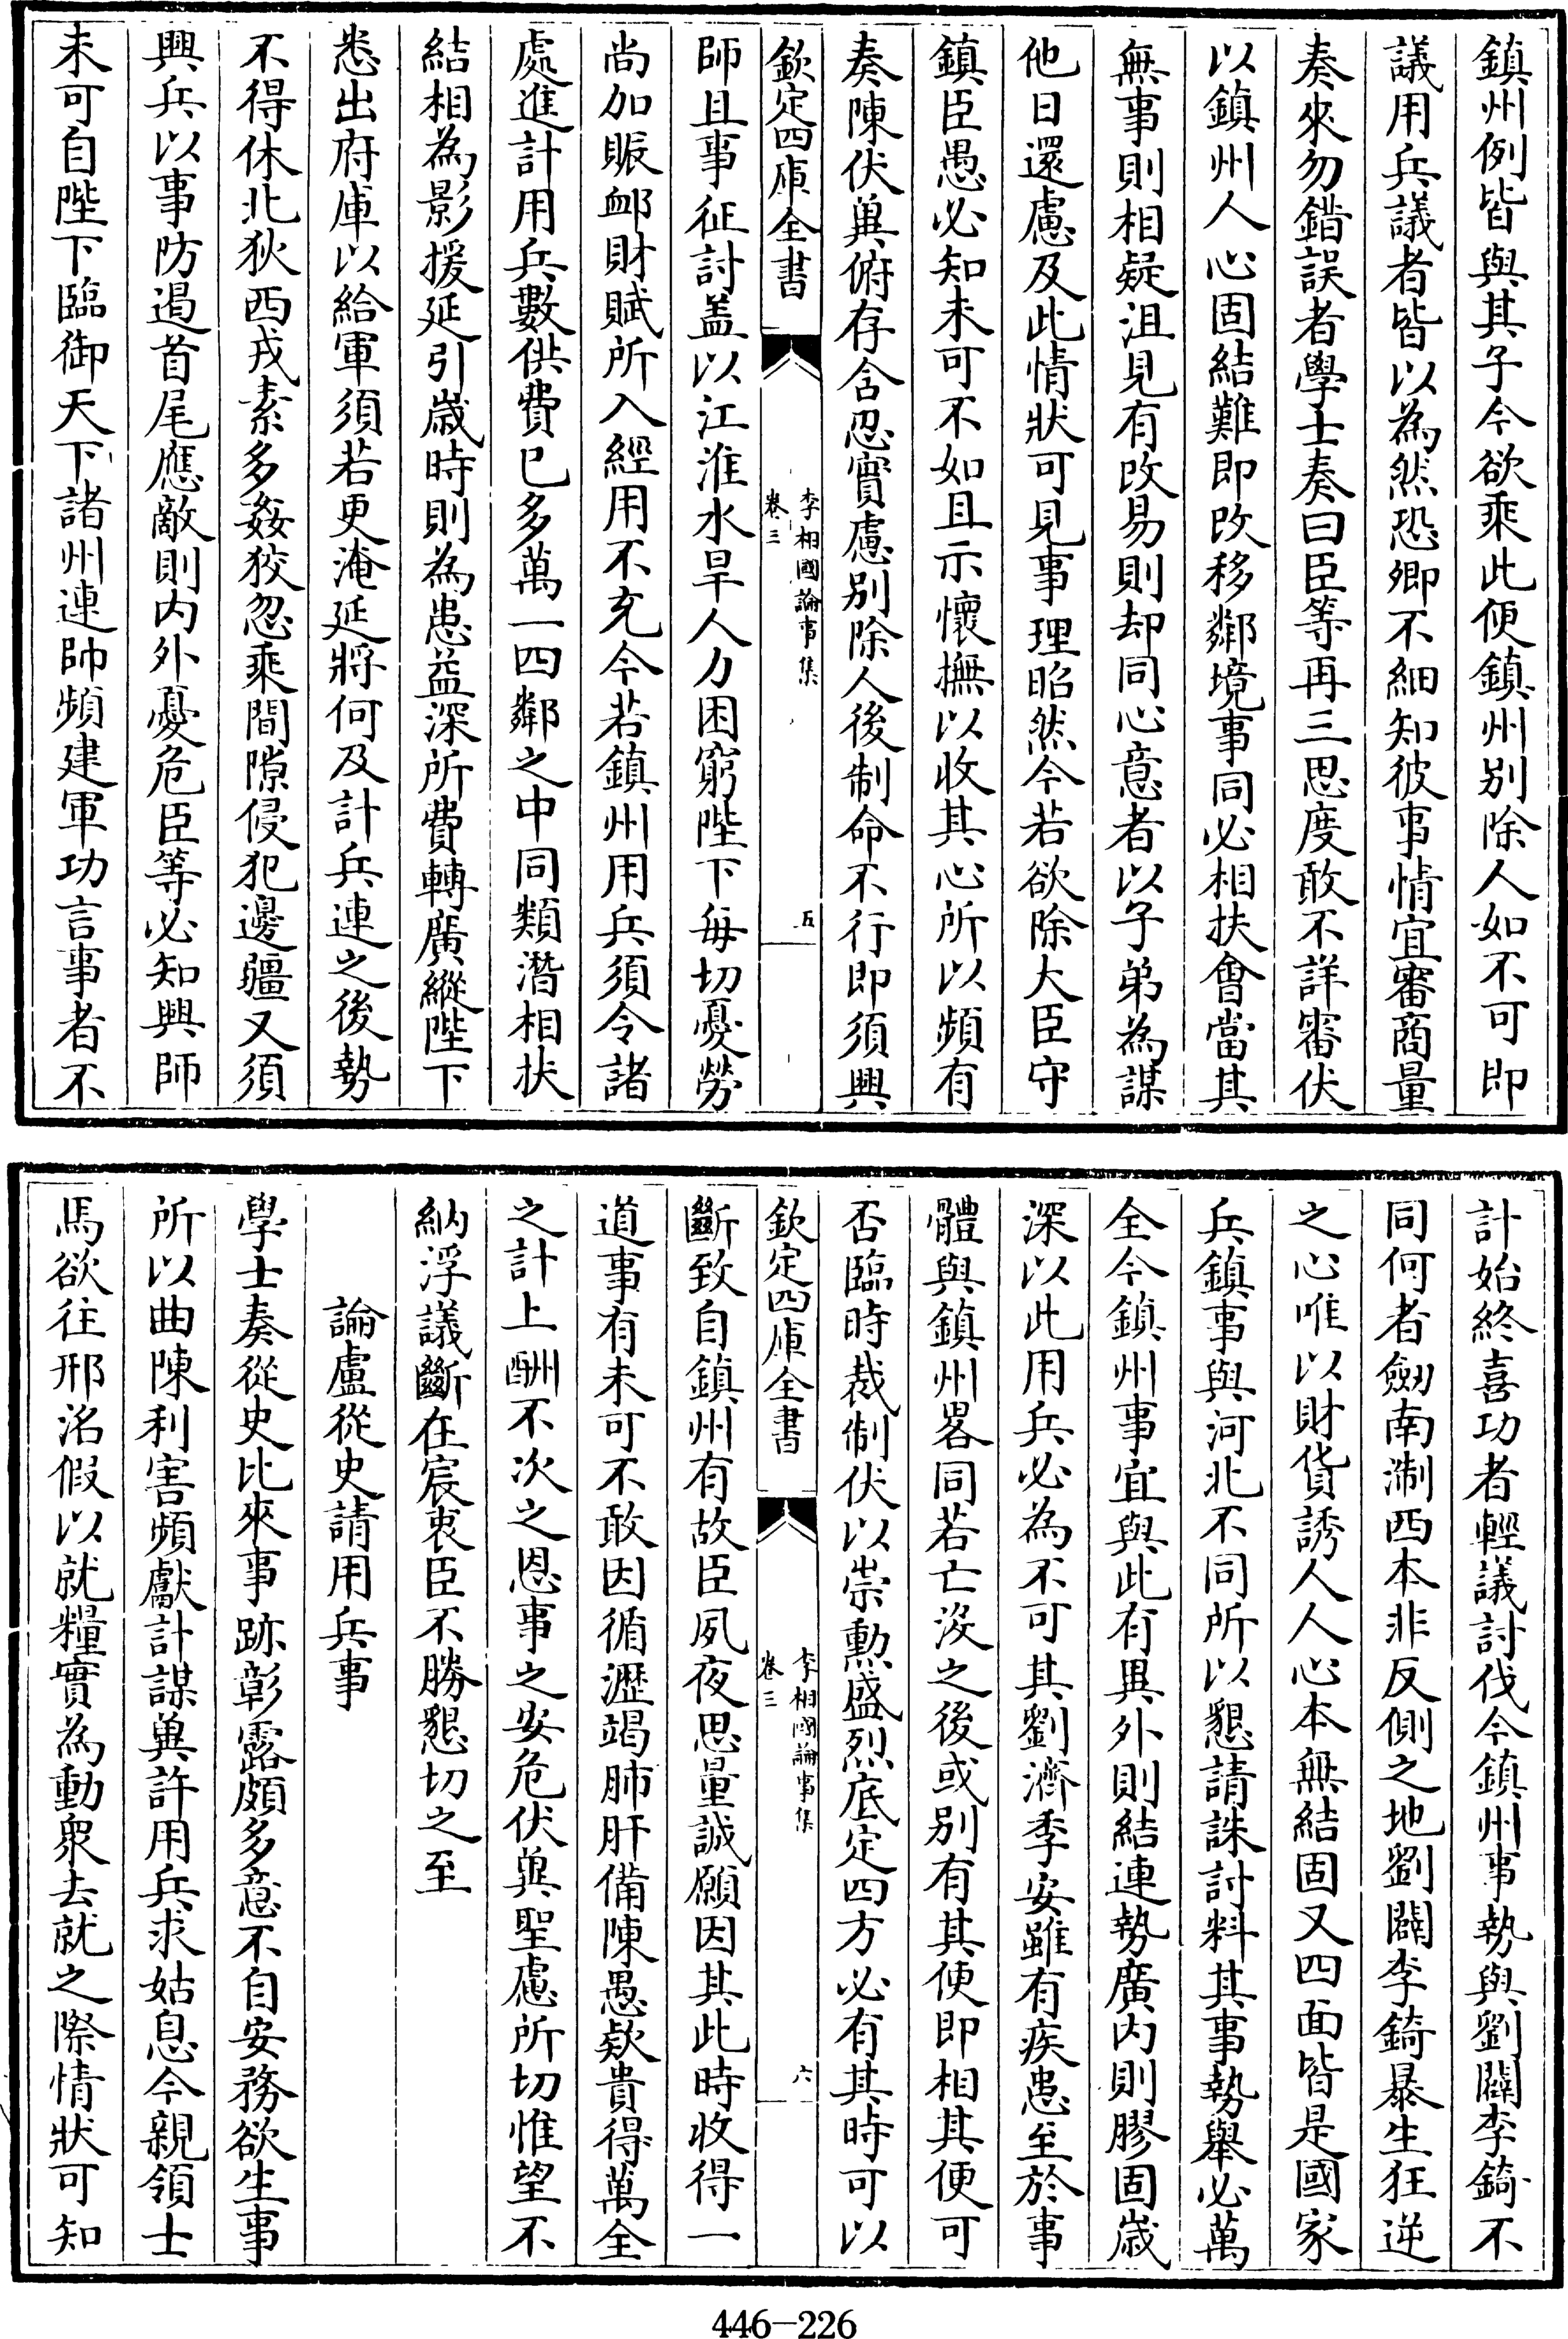 鎮州例皆與其子今欲乘此便鎮州別除人如不可即
議用兵議者皆以為然恐卿不細知彼事情宜審商量
奏來勿錯誤者學士奏曰臣等再三思度敢不詳審伏
以鎮州人心固結難即改移鄰境事同必相扶會當其
無事則相疑沮見有改易則却同心意者以子弟為謀
他日還慮及此情狀可見事理昭然今若欲除大臣守
鎮臣愚必知未可不如且示懷撫以收其心所以頻有
奏陳伏兾俯存含忍實慮別除人後制命不行即須興
欽定四庫全書
李相國論事集
卷三
五
師且事征討盖以江淮水旱人力困窮陛下每切憂勞
尚加賑䘏財賦所入經用不充今若鎮州用兵須令諸
處進計用兵數供費已多萬一四鄰之中同類潛相扶
結相為影援延引歲時則為患益深所費轉廣縱陛下
悉出府庫以給軍須若更淹延將何及計兵連之後勢
不得休北狄西戎素多姦狡忽乘間隙侵犯邊疆又須
興兵以事防遏首尾應敵則内外憂危臣等必知興師
未可自陛下臨御天下諸州連帥頻建軍功言事者不
計始終喜功者輕議討伐今鎮州事勢與劉闢李錡不
同何者劔南淛西本非反側之地劉闢李錡暴生狂逆
之心唯以財貨誘人人心本無結固又四面皆是國家
兵鎮事與河北不同所以懇請誅討料其事勢舉必萬
全今鎮州事宜與此有異外則結連勢廣内則膠固歲
深以此用兵必為不可其劉濟季安雖有疾患至於事
體與鎮州畧同若亡沒之後或別有其便即相其便可
否臨時裁制伏以崇勲盛烈底定四方必有其時可以
欽定四庫全書
李相國論事集
卷三
六
斷致自鎮州有故臣夙夜思量誠願因其此時收得一
道事有未可不敢因循瀝竭肺肝備陳愚欵貴得萬全
之計上酬不次之恩事之安危伏兾聖慮所切惟望不
納浮議斷在宸衷臣不勝懇切之至
論盧從史請用兵事
學士奏從史比來事跡彰露頗多意不自安務欲生事
所以曲陳利害頻獻計謀兾許用兵求姑息今親領士
馬欲往邢洺假以就糧實為動衆去就之際情狀可知
446—226